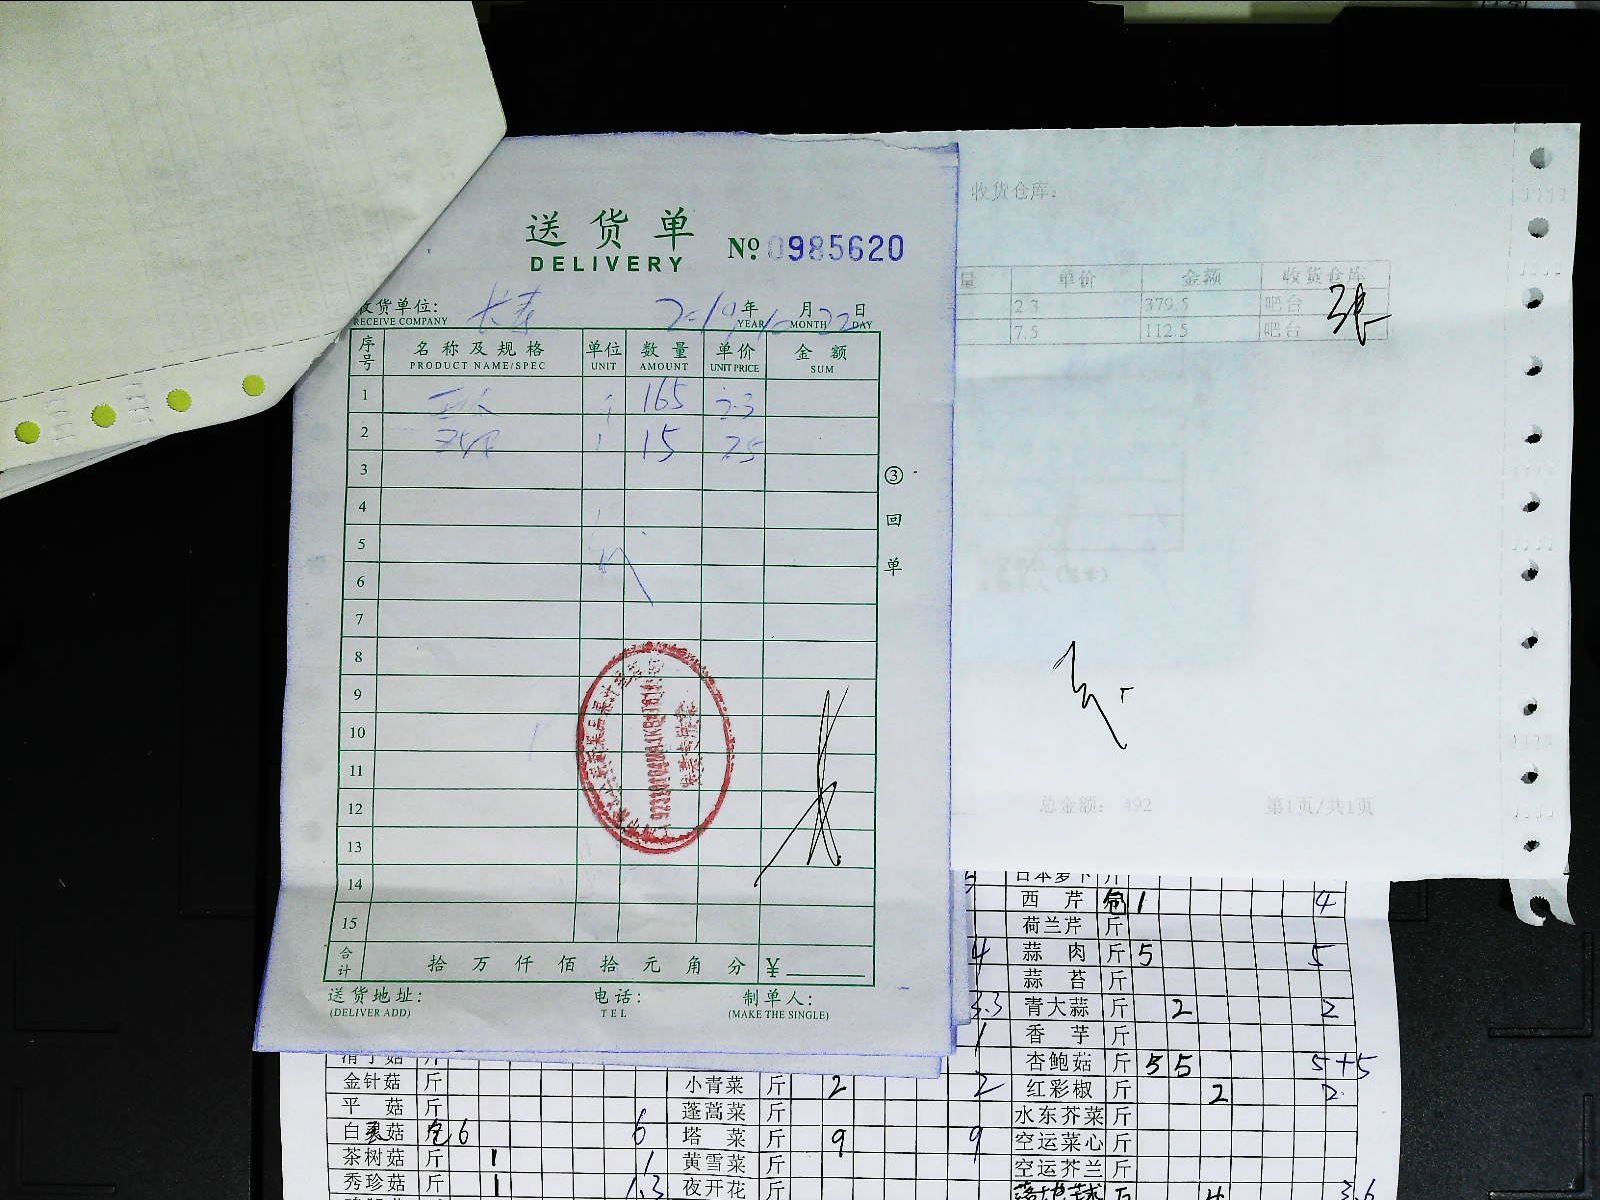 送货单
DELIVERY
No 0985620
收货单位: 长寿
RECEIVE COMPANY
年 月 日
YEAR MONTH DAY
序号 名称及规格 单位 数量 单价 金额
PRODUCT NAME/SPEC UNIT AMOUNT UNIT PRICE SUM
1 165 2.3
2 15 7.5
3
4
5
6
7
8
9
10
11
12
13
14
15
合计 拾 万 仟 佰 拾 元 角 分 ¥
送货地址: 电话: 制单人:
(DELIVER ADD) TEL (MAKE THE SINGLE)
③ 回单
收货仓库:
量 单价 金额 收货仓库
2.3 379.5 吧台
7.5 112.5 吧台
张
总金额: 492 第1页/共1页
日本萝卜 斤
西芹 包 1 4
荷兰芹 斤
4 蒜肉 斤 5 5
蒜苔 斤
3.3 青大蒜 斤 2 2
1 香芋 斤
杏鲍菇 斤 5 5 5+5
金针菇 斤 小青菜 斤 2 2 红彩椒 斤 2 2
平菇 斤 蓬蒿菜 斤 水东芥菜 斤
白 菇 6 6 塔菜 斤 9 9 空运菜心 斤
茶树菇 斤 1 1 黄雪菜 斤 空运芥兰 斤
秀珍菇 斤 1 1.3 夜开花 斤 4 3.6